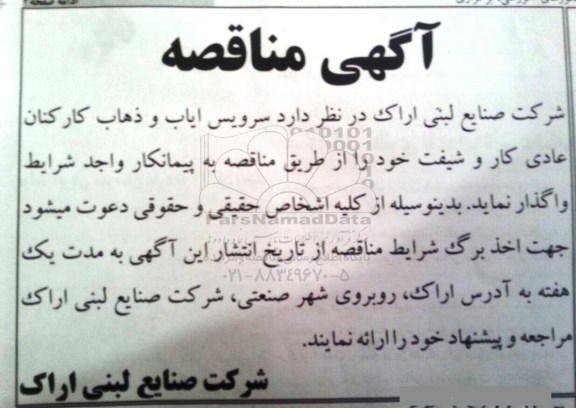 آگهی مناقصه
شرکت صنایع لبنی اراک در نظر دارد سرویس ایاب و ذهاب کارکنان
عادی کار و شیفت خود را از طریق مناقصه به پیمانکار واجد شرایط
واگذار نماید. بدینوسیله از کلیه اشخاص حقیقی و حقوقی دعوت میشود
ParsNamadData
جهت اخذ برگ شرایط مناقصه از تاریخ انتشار این آگهی به مدت یک
۰۲۱-۸۸۳۴۹۶۷۰-۵
هفته به آدرس اراک، روبروی شهر صنعتی، شرکت صنایع لبنی اراک
مراجعه و پیشنهاد خود را ارائه نمایند.
شرکت صنایع لبنی اراک